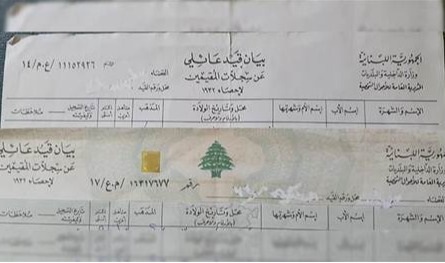 الجمهوريّة اللبنانيّة
وزارة الداخلية والبلديات
المديرية العامة للأحوال الشخصية
بيان قيد عائلي
عن سجلات المقيمين
لإحصاء ١٩٣٢
١١١٥٢٩٢٦ / ع.م / ١٤
القضاء
محل ورقم القيد
الإسم والشهرة
إسم الأب
إسم الأم وشهرتها
محل وتاريخ الولادة
المذهب
ملاحظات
الجمهوريّة اللبنانيّة
وزارة الداخلية والبلديات
المديرية العامة للأحوال الشخصية
بيان قيد عائلي
عن سجلات المقيمين
لإحصاء ١٩٣٢
رقم ١١٣١٧٦٧٧ / م.ع / ١٧
القضاء
محل ورقم القيد
الإسم والشهرة
إسم الأب
إسم الأم وشهرتها
محل وتاريخ الولادة
المذهب
ملاحظات